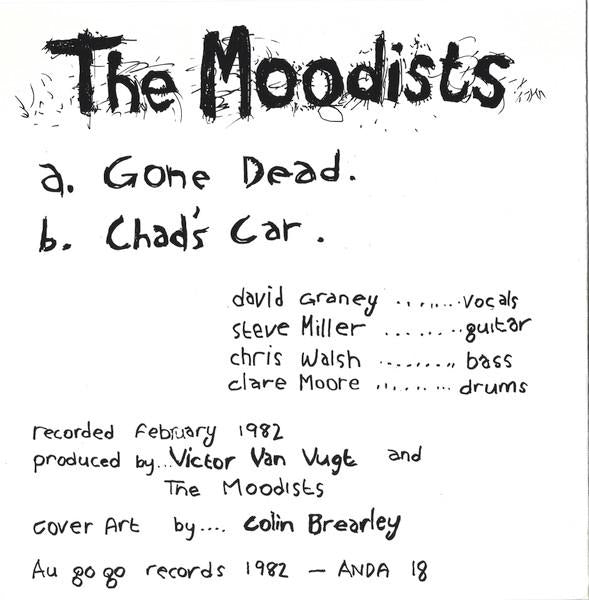 The Moodists
a. Gone Dead.
b. Chad's Car.
david Graney ........vocals
steve Miller ........guitar
chris Walsh ......... bass
clare Moore ......... drums
recorded February 1982
produced by...Victor Van Vugt and
The Moodists
cover Art by.... Colin Brearley
Au go go records 1982 - ANDA 18